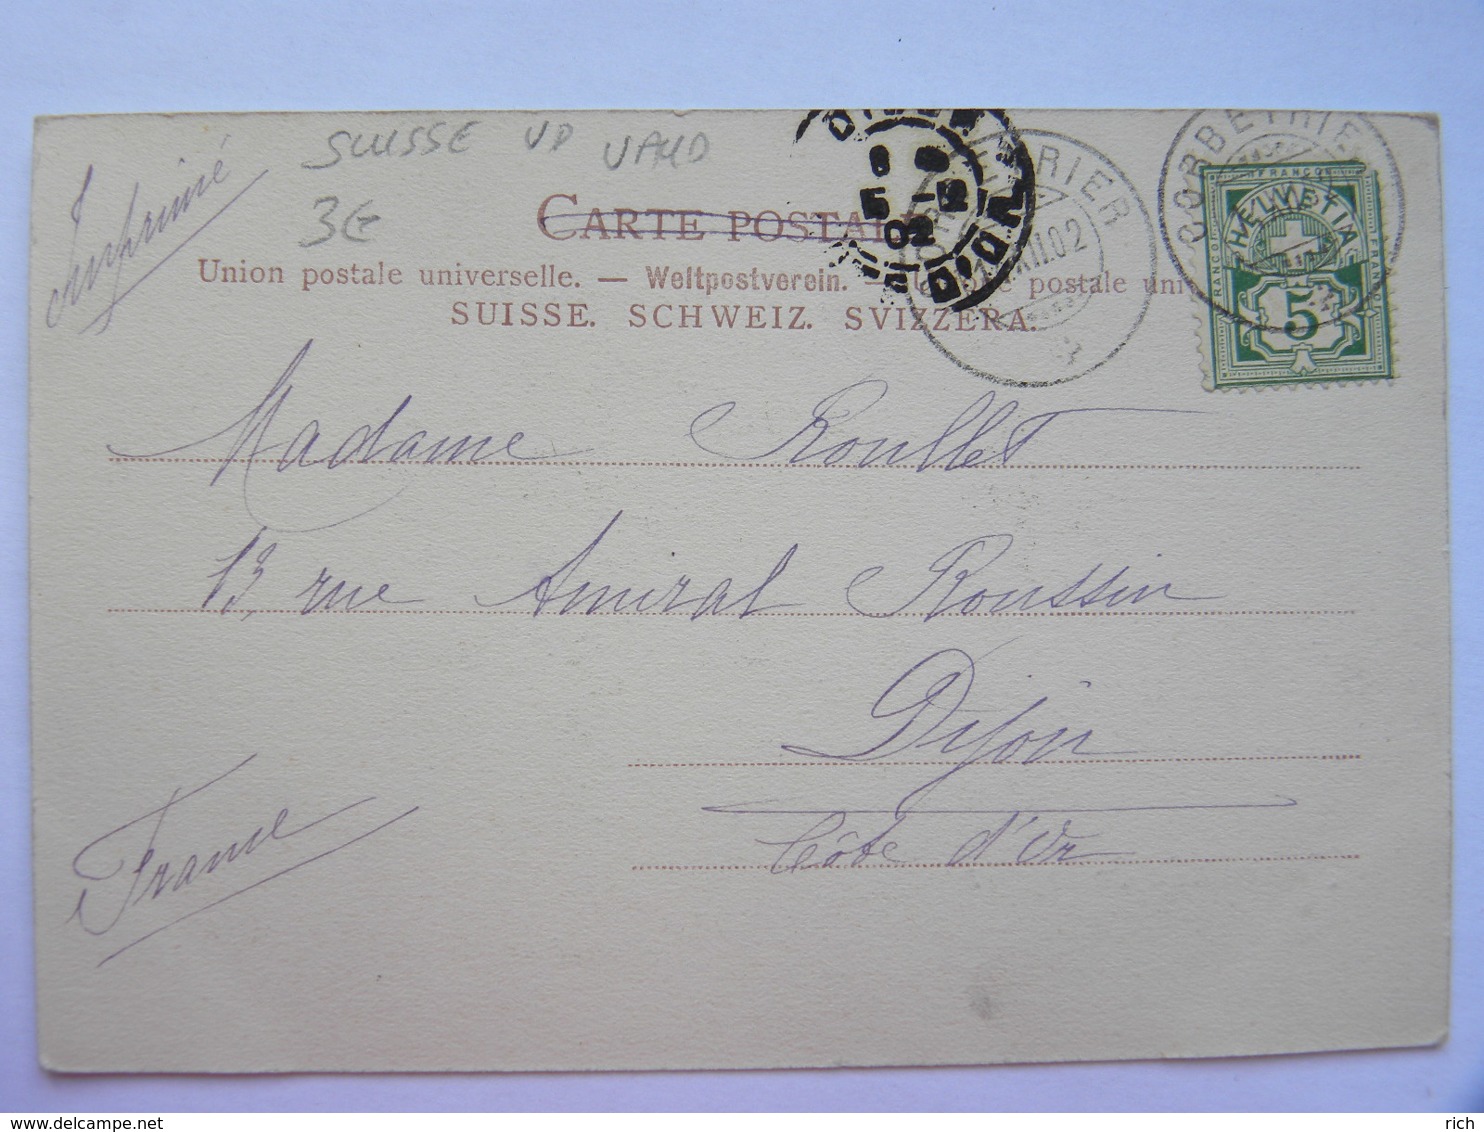 Imprimé
SUISSE VD VAUD
3€
CARTE POSTALE
Union postale universelle. — Weltpostverein. — postale uni
SUISSE. SCHWEIZ. SVIZZERA.
CORBEYRIER
XII.02
DIJON
CÔTE-D'OR
5 -12
02
CORBEYRIER
FRANCO
HELVETIA
FRANCO
FRANCO
5
Madame Roullet
13, rue Amiral Roussin
Dijon
Côte d'Or
France
rich